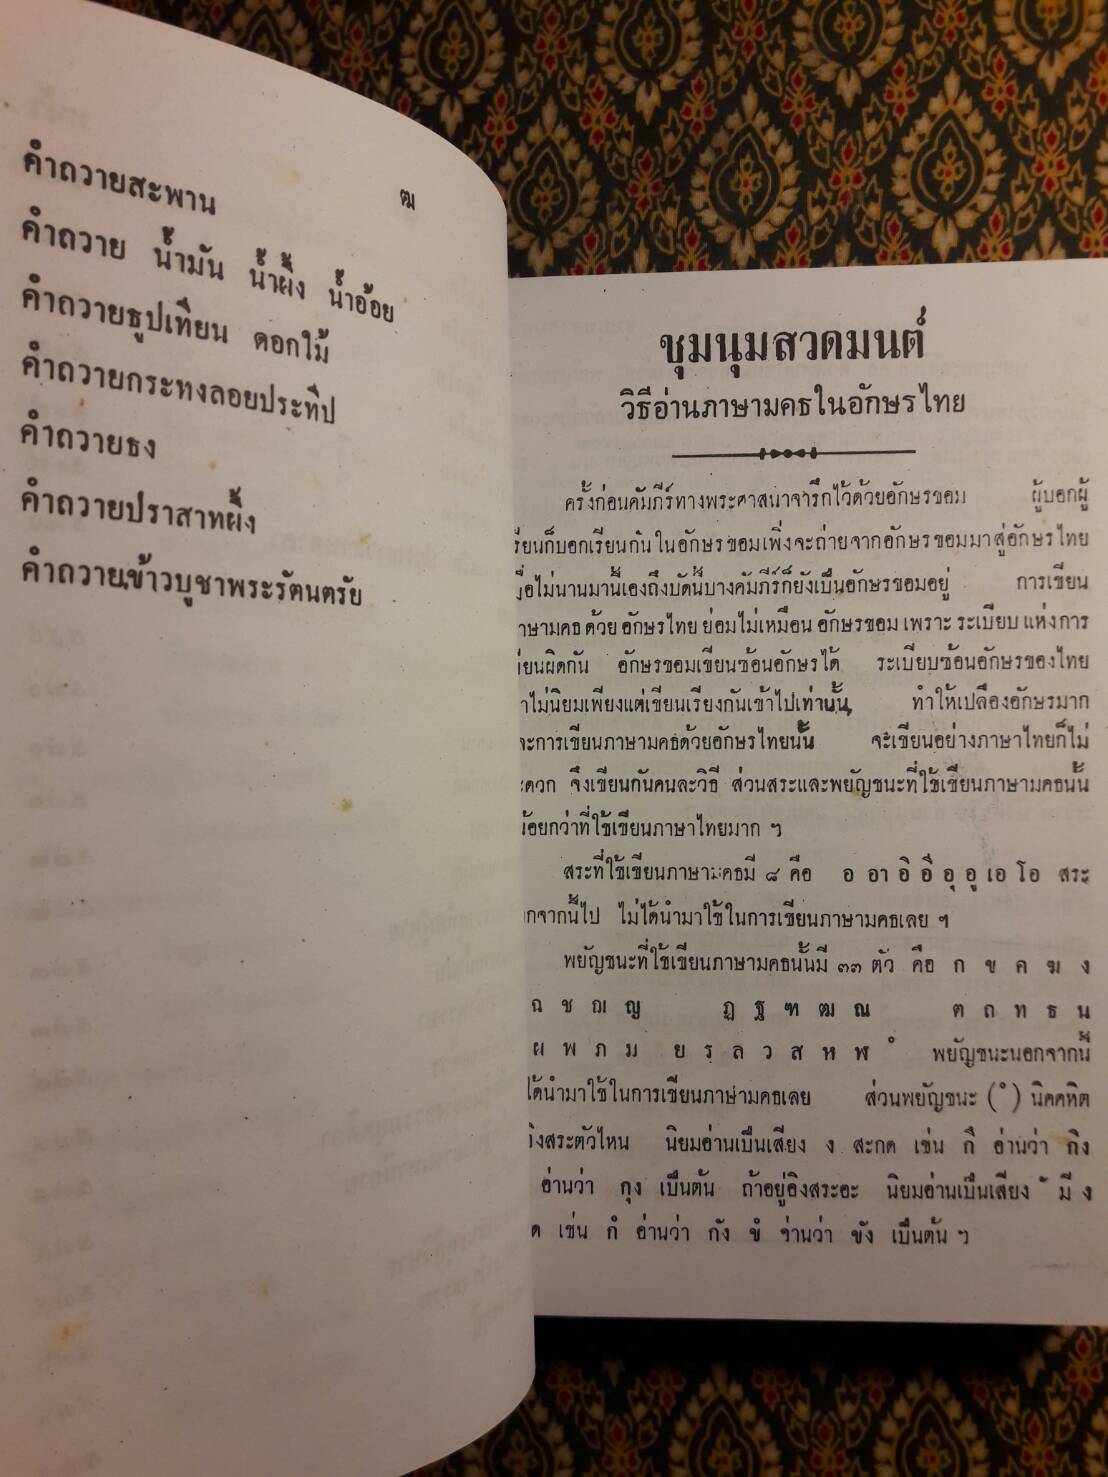 ฒ
คำถวายสะพาน
คำถวาย น้ำมัน น้ำผึ้ง น้ำอ้อย
คำถวายธูปเทียน ดอกไม้
คำถวายกระทงลอยประทีป
คำถวายธง
คำถวายปราสาทผึ้ง
คำถวายข้าวบูชาพระรัตนตรัย
ชุมนุมสวดมนต์
วิธีอ่านภาษามคธในอักษรไทย
ครั้งก่อนคัมภีร์ทางพระศาสนาจารึกไว้ด้วยอักษรขอม ผู้บอกผู้
รียนก็บอกเรียนกันในอักษรขอมเพิ่งจะถ่ายจากอักษรขอมมาสู่อักษรไทย
มื่อไม่นานมานี้เองถึงบัดนี้บางคัมภีร์ก็ยังเป็นอักษรขอมอยู่ การเขียน
าษามคธด้วยอักษรไทยย่อมไม่เหมือนอักษรขอมเพราะระเบียบแห่งการ
ขียนผิดกัน อักษรขอมเขียนซ้อนอักษรได้ ระเบียบซ้อนอักษรของไทย
ราไม่นิยมเพียงแต่เขียนเรียงกันเข้าไปเท่านั้น, ทำให้เปลืองอักษรมาก
และการเขียนภาษามคธด้วยอักษรไทยนั้น จะเขียนอย่างภาษาไทยก็ไม่
ะดวก จึงเขียนกันคนละวิธี ส่วนสระและพยัญชนะที่ใช้เขียนภาษามคธนั้น
น้อยกว่าที่ใช้เขียนภาษาไทยมาก ฯ
สระที่ใช้เขียนภาษามคธมี ๘ คือ อ อา อิ อี อุ อู เอ โอ สระ
อกจากนี้ไป ไม่ได้นำมาใช้ในการเขียนภาษามคธเลย ฯ
พยัญชนะที่ใช้เขียนภาษามคธนั้นมี ๓๓ ตัว คือ ก ข ค ฆ ง
ฉ ช ฌ ญ ฏ ฐ ฑ ฒ ณ ต ถ ท ธ น
ผ พ ภ ม ย ร ล ว ส ห ฬ ํ พยัญชนะนอกจากนี้
ได้นำมาใช้ในการเขียนภาษามคธเลย ส่วนพยัญชนะ ( ํ ) นิคคหิต
อิงสระตัวไหน นิยมอ่านเป็นเสียง ง สะกด เช่น กึ อ่านว่า กิง
อ่านว่า กุง เป็นต้น ถ้าอยู่อิงสระอะ นิยมอ่านเป็นเสียง ั มี ง
ด เช่น กํ อ่านว่า กัง ขํ อ่านว่า ขัง เป็นต้น ฯ